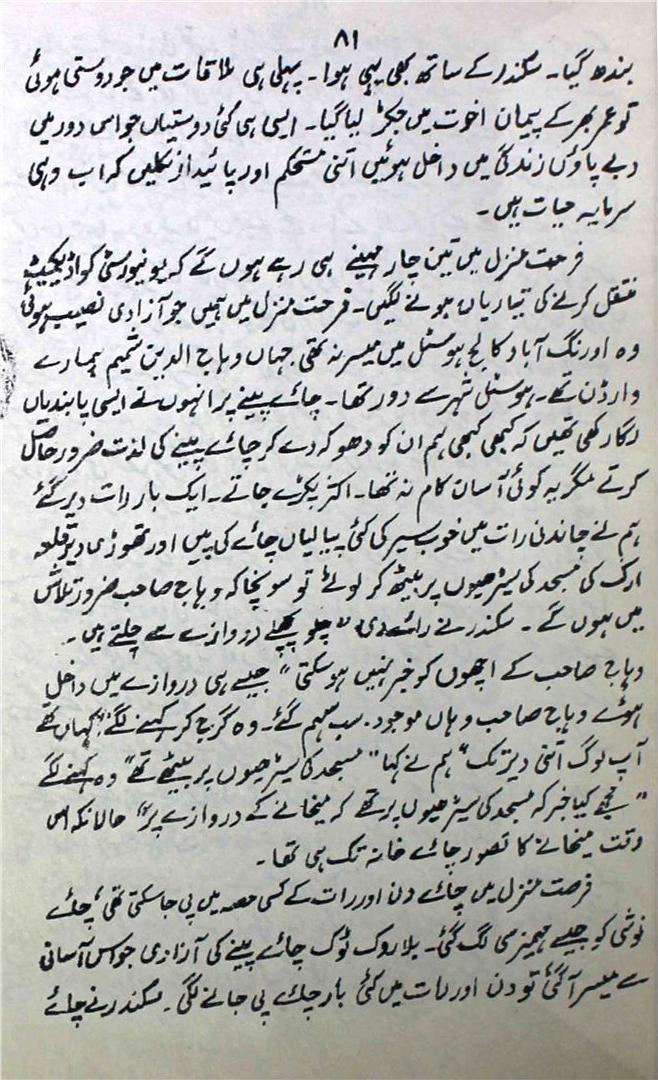 ۸۱
بندھ گیا۔ سکندر کے ساتھ بھی یہی ہوا۔ پہلی ہی ملاقات میں جو دوستی ہوئی
تو عمر بھر کے پیمان اخوت میں جکڑ لیا گیا۔ ایسی ہی کئی دوستیاں جو اس دور میں
دبے پاؤں زندگی میں داخل ہوئیں اتنی مستحکم اور پائیدار نکلیں کہ اب وہی
سرمایہ حیات ہیں۔
فرحت منزل میں تین چار مہینے ہی رہے ہوں گے کہ یونیورسٹی کو اڈیکمیٹ
منتقل کرنے کی تیاریاں ہونے لگیں۔ فرحت منزل میں ہمیں جو آزادی نصیب ہوئی
وہ اورنگ آباد کالج ہوسٹل میں میسر نہ تھی جہاں وہاج الدین شمیم ہمارے
وارڈن تھے۔ ہوسٹل شہر سے دور تھا۔ چائے پینے پر انہوں نے ایسی پابندیاں
لگا رکھی تھیں کہ کبھی کبھی ہم ان کو دھوکہ دے کر چائے پینے کی لذت ضرور حاصل
کرتے مگر یہ کوئی آسان کام نہ تھا۔ اکثر پکڑے جاتے۔ ایک بار رات دیر گئے
ہم نے چاندنی رات میں خوب سیر کی کئی پیالیاں چائے کی پیں اور تھوڑی دیر قلعہ
ارک کی مسجد کی سیڑھیوں پر بیٹھ کر لوٹے تو سونچا کہ وہاج صاحب ضرور تلاش
میں ہوں گے۔ سکندر نے رائے دی "چلو پچھلے دروازے سے چلتے ہیں۔
وہاج صاحب کے اچھوں کو خبر نہیں ہو سکتی" جیسے ہی دروازے میں داخل
ہوئے وہاج صاحب وہاں موجود۔ سب سہم گئے۔ وہ گرج کر کہنے لگے "کہاں تھے
آپ لوگ اتنی دیر تک" ہم نے کہا "مسجد کی سیڑھیوں پر بیٹھے تھے" وہ کہنے لگے
"مجھے کیا خبر کہ مسجد کی سیڑھیوں پر تھے کہ میخانے کے دروازے پر" حالانکہ اس
وقت میخانے کا تصور چائے خانہ تک ہی تھا۔
فرحت منزل میں چائے دن اور رات کے کسی حصہ میں پی جا سکتی تھی، چائے
نوشی کو جیسے مہمیز سی لگ گئی۔ بلا روک ٹوک چائے پینے کی آزادی جو اس آسانی
سے میسر آ گئی تو دن اور رات میں کئی بار چائے پی جانے لگی۔ سکندر نے چائے